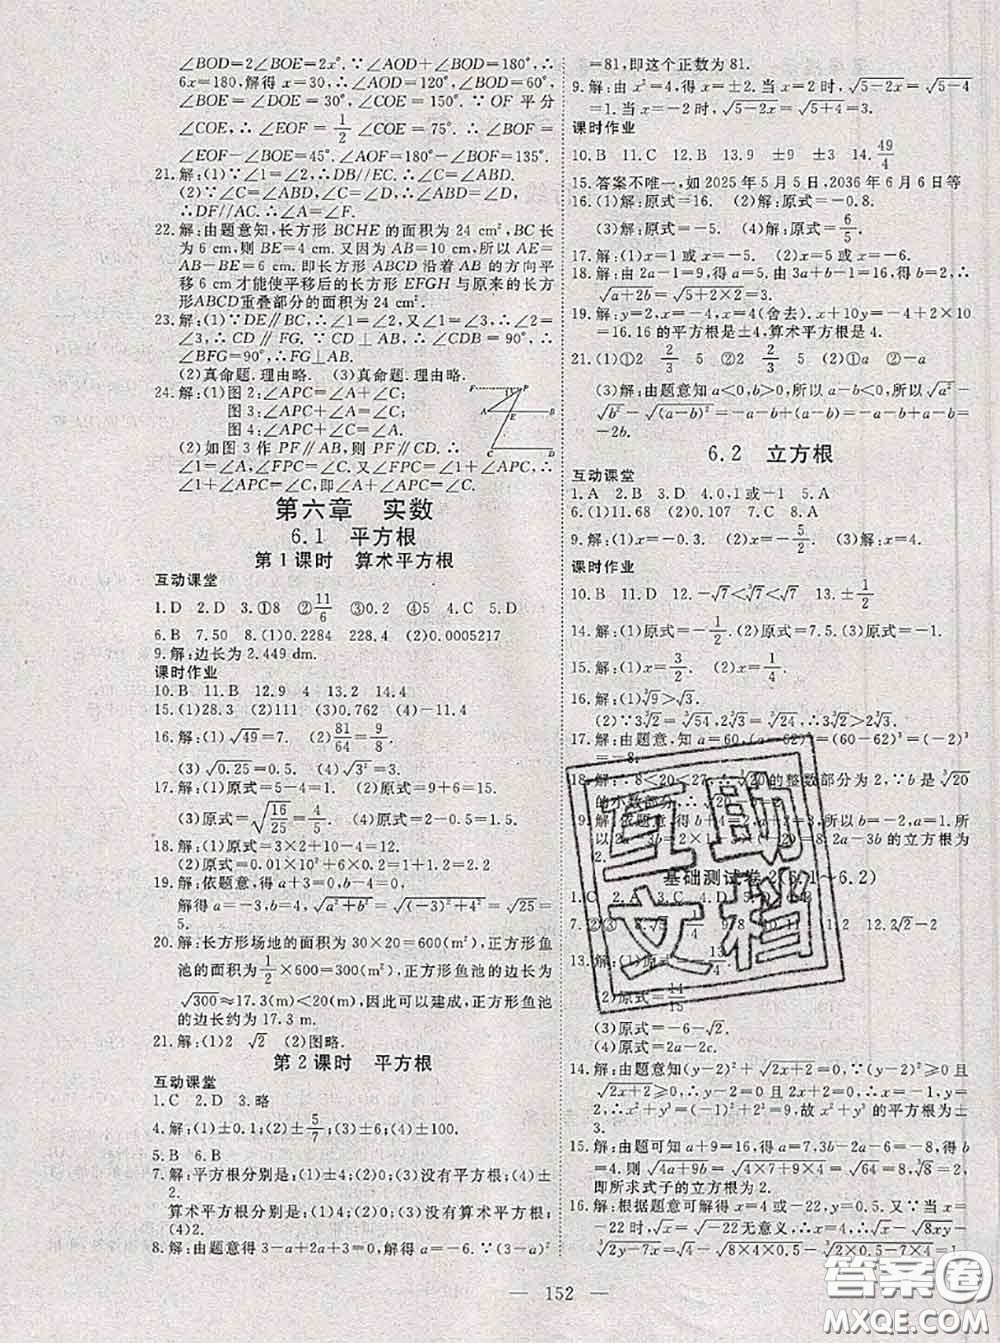 ∠BOD=2∠BOE=2x°.∵∠AOD+∠BOD=180°,∴
6x=180,解得 x=30,∴∠AOD=120°,∠BOD=60°,
∠BOE=∠DOE=30°,∠COE=150°.∵OF 平分
∠COE,∴∠EOF=1/2∠COE=75°.∴∠BOF=
∠EOF-∠BOE=45°.∠AOF=180°-∠BOF=135°.
21.解:(1)∵∠D=∠1,∴DB//EC.∴∠C=∠ABD.
(2)∵∠C=∠ABD,∠D=∠C,∴∠D=∠ABD,
∴DF//AC.∴∠A=∠F
22.解:由题意知,长方形 BCHE 的面积为 24 cm²,BC 长
为 6 cm,则 BE=4 cm.又因为 AB=10 cm,所以 AE=
AB-BE=6 cm.即长方形 ABCD 沿着 AB 的方向平
移 6 cm 才能使平移后的长方形 EFGH 与原来的长方
形ABCD重叠部分的面积为 24 cm².
23.解:(1)∵DE//BC,∴∠1=∠2,又∵∠1=∠3,∴∠2=
∠3,∴CD//FG.∵CD⊥AB,∴∠CDB=90°,∴
∠BFG=∠CDB=90°,∴FG⊥AB.
(2)真命题.理由略.(3)真命题.理由略.
24.解:(1)图 2:∠APC=∠A+∠C;
图 3:∠APC=∠A+∠C;
图 4:∠APC+∠C=∠A.
(2)如图 3 作 PF//AB,则 PF//CD.∴
∠1=∠A,∠FPC=∠C.∵∠1+∠APC=∠FPC,∴
∠1+∠APC=∠C,即∠APC+∠A=∠C.
F P
A E B
C D
第六章 实数
6.1 平方根
第 1 课时 算术平方根
互动课堂
1.D 2.D 3.①8 ②11/6 ③0.2 ④5 4.C 5.D
6.B 7.50 8.(1)0.2284 228.4 (2)0.0005217
9.解:边长为 2.449 dm.
课时作业
10.B 11.B 12.9 4 13.2 14.4
15.(1)28.3 (2)54 (3)0.762 (4)-11.4
16.解:(1)√49=7. (2)√(81/64)=9/8.
(3)√0.25=0.5; (4)√3²=3.
17.解:(1)原式=5-4=1. (2)原式=9+6=15.
(3)原式=√(16/25)=4/5. (4)原式=2-0.5=1.5.
18.解:(1)原式=3×2+6=12.
(2)原式=0.01×10²+6×0.2=1+1.2=2.2.
19.解:依题意,得 a+3=0,b-4=0,
解得 a=-3,b=4,√(a²+b²)=√((-3)²+4²)=√25=
5.
20.解:长方形场地的面积为 30×20=600(m²),正方形鱼
池的面积为1/2×600=300(m²),正方形鱼池的边长为
√300≈17.3(m)<20(m),因此可以建成,正方形鱼池
的边长约为 17.3 m.
21.解:(1)2 √2 (2)图略.
第 2 课时 平方根
互动课堂
1.C 2.D 3.略
4.解:(1)±0.1;(2)±5/7;(3)±6;(4)±100.
5.B 6.B
7.解:平方根分别是:(1)±4;(2)0;(3)没有平方根;(4)±
2.
算术平方根分别是:(1)4;(2)0;(3)没有算术平方根;
(4)2.
8.解:由题意得 3-a+2a+3=0,解得 a=-6.∵(3-a)²
=81,即这个正数为 81.
9.解:由 x²=4,得 x=±2.当 x=2 时,√(5-2x)=√(5-4)
=1.当 x=-2 时,√(5-2x)=√(5+4)=3.
课时作业
10.B 11.C 12.B 13.9 ±9 ±3 14.49/4
15.答案不唯一,如 2025 年 5 月 5 日,2036 年 6 月 6 日等
16.(1)解:原式=16. (2)解:原式=-0.8.
(3)解:原式=-5. (4)解:原式=6/5.
17.(1)x=1或x=-5. (2)x=5或x=-6.
18.解:由 2a-1=9,得 a=5.由 3a+b-1=16,得 b=2,∴
√(a+2b)=√(5+2×2)=√9=3.
19.解:y=2,x=-4,x=4(舍去),x+10y=-4+2×10
=16.16 的平方根是±4,算术平方根是 4.
21.(1)①2 2/3 5 ②2 2/3 5 (2)①a ②-a
(3)解:由题意知 a<0,b>0,所以 a-b<0,所以√a²-
√b²-√((a-b)²)=-a-b-(b-a)=-a-b+a-b=
-2b.
6.2 立方根
互动课堂
1.A 2.B 3.D 4.0,1 或-1 5.A
6.(1)11.8 (2)0.0270 7.C 8.A
9.解:(1)原式=0.3. (2)原式=-5/2. (3)原式=4.
课时作业
10.B 11.D 12.B -√7<∛7<√7 13.x=±1/2
14.解:(1)原式=-1/2.(2)原式=7.5.(3)原式=-1.
15.解:(1)x=3/2. (2)x=1/4.
16.解:(1)∛9>√3.
(2)∵3∛2=∛54,2∛3=∛24,∴3∛2>2∛3.
17.解:由题意,知 a=60,b=62,(a-b)³=(60-62)³=
18.解:∵8<20<27,∴∛20的整数部分为 2.∵b 是∛20
的小数部分,
2.
基础测试卷2(6.1~6.2)
(3)原式=-6-√2.
(4)原式=2a-2c.
14.解:由题意知(y-2)²+√(2x+2)=0,∵(y-2)²≥0且
√(2x+2)≥0,∴y-2=0,2x+2=0,∴x=-1,y=
2,∴x²+y³=(-1)²+2³=1+8=9,故 x²+y³ 的平方根为±
3.
15.解:由题可知 a+9=16,得 a=7,3b-2a=-8,得 b=
4.则∛(4(a+b)-4×9)=∛(4×(7+4)-4×9)=∛8=2.
即所求式子的立方根为 2.
16.解:根据题意可解得 x=4 或-22,∴y=5.又∵当 x=
-22 时,√x=√-22无意义,∴x=4,∴√x-√8xy-
∛(2y-7x)=√4-√(8×0.5×4)-∛(2×0.5-7×4)=1.
152
互助文档
答案圈
MXQE.COM